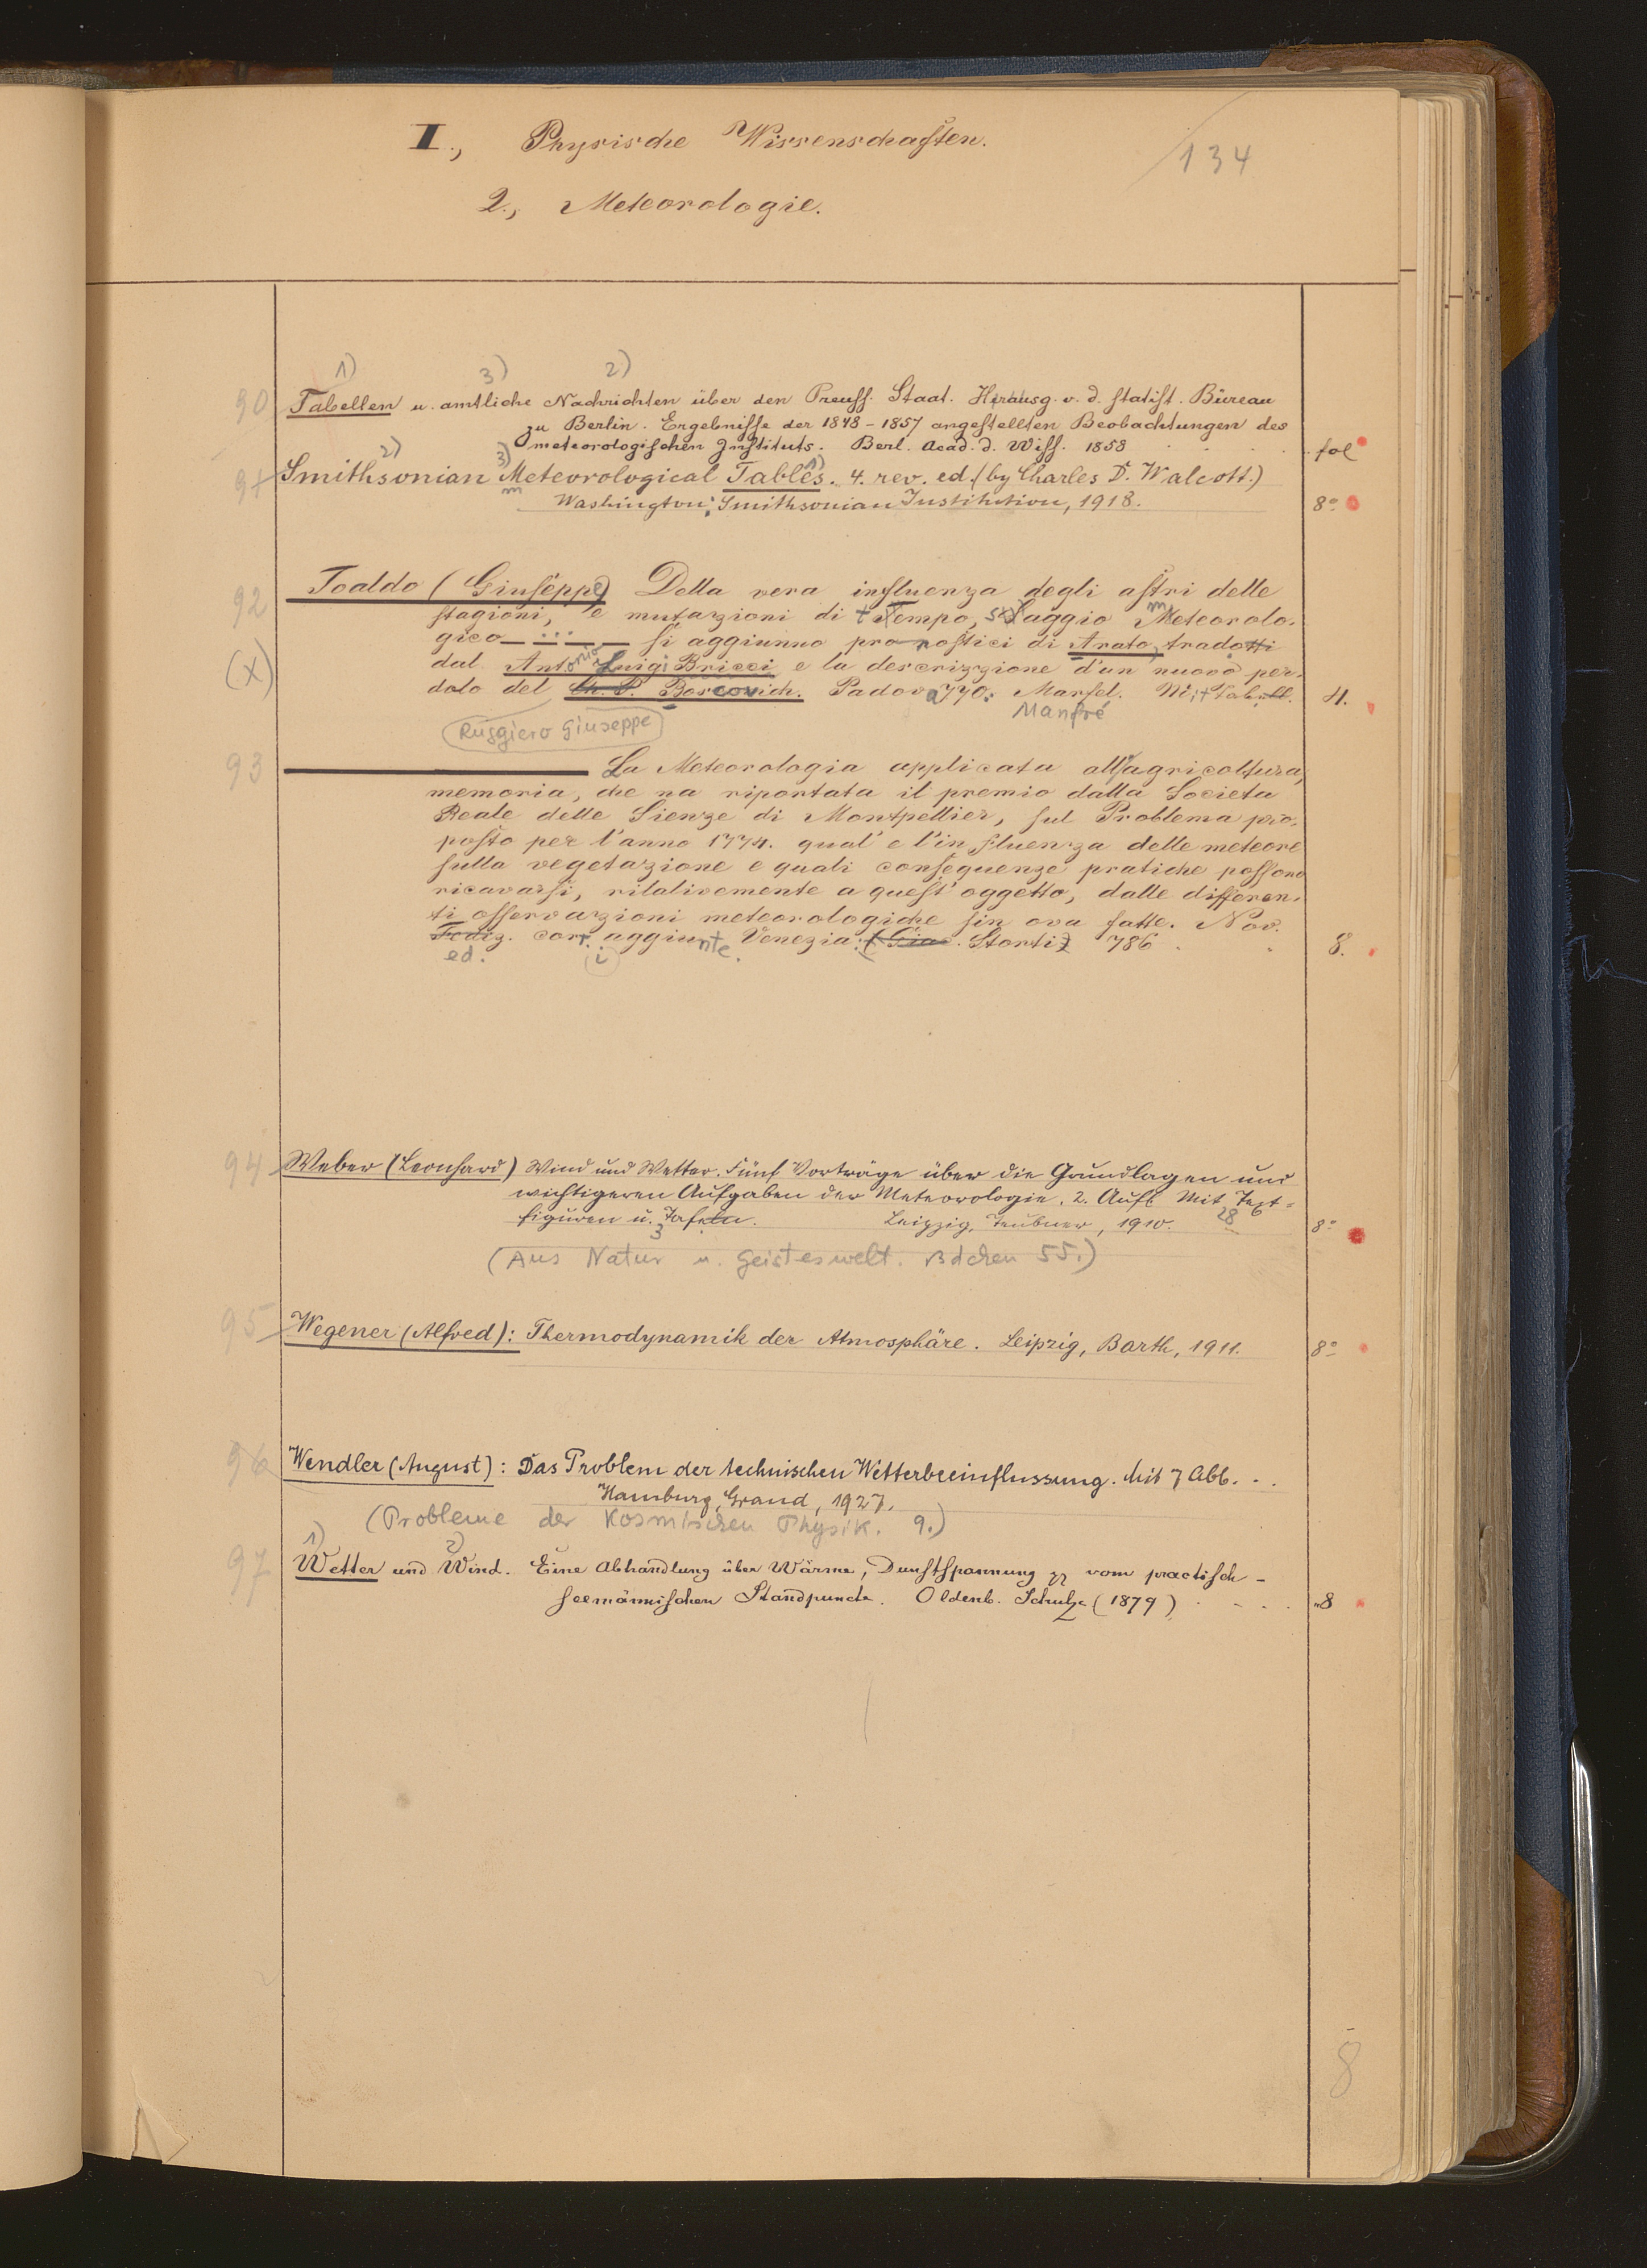 I., Physische Wissenschaften.
134
2., Meteorologie.
1) 3) 2)
90 Tabellen u. amtliche Nachrichten über den Preuss. Staat. Herausg. v. d. statist. Büreau
zu Berlin. Ergebnisse der 1848-1857 angestellten Beobachtungen des
meteorologischen Instituts. Berl. Acad. d. Wiss. 1858 fol
2) 3) 1)
91 Smithsonian Meteorological Tables. 4. rev. ed. (by Charles D. Walcott.)
m
Washington: Smithsonian Institution, 1918. 8°
92 Toaldo (Giuseppe) Della vera influenza degli astri delle
stagioni, e mutazioni di tempo, saggio Meteorolo-
gico — ... — si aggiunno pronostici di Arato, tradotti
(x) dal Antonio Luigi Bricci e la descrizzione d'un nuovo per-
dolo del Ch. P. Boscovich. Padova 770. Manfel. Mit Tabell. 4.
Manfré
(Ruggiero Giuseppe)
93 — La Meteorologia applicata all'agricoltura,
memoria, che na riportata il premio dalla Societa
Reale delle Sienze di Montpellier, sul Problema pro-
posto per l'anno 1774. qual' e l'influenza delle meteore
sulla vegetazione e quali consequenze pratiche possono
ricavarsi, rilativemente a quest' oggetto, dalle differen-
ti osservazioni meteorologiche sin ora fatte. Nov.
Tediz. corr. aggiunte. Venezia: (Gia. Storti) 786 8.
ed. i
94 Weber (Leonhard) Wind und Wetter. Fünf Vorträge über die Grundlagen und
wichtigeren Aufgaben der Meteorologie. 2. Aufl. Mit 28 Text-
figuren u. 3 Tafeln. Leipzig, Teubner, 1910. 8°
(Aus Natur u. Geisteswelt. Bdchen 55.)
95 Wegener (Alfred): Thermodynamik der Atmosphäre. Leipzig, Barth, 1911. 8°
96 Wendler (August): Das Problem der technischen Wetterbeeinflussung. Mit 7 Abb. . .
Hamburg, Grand, 1927.
(Probleme der Kosmischen Physik. 9.)
1) 2)
97 Wetter und Wind. Eine Abhandlung über Wärme, Dunstspannung pp vom practisch-
seemännischen Standpuncte. Oldenb. Schulze (1879) . - . . "8
8